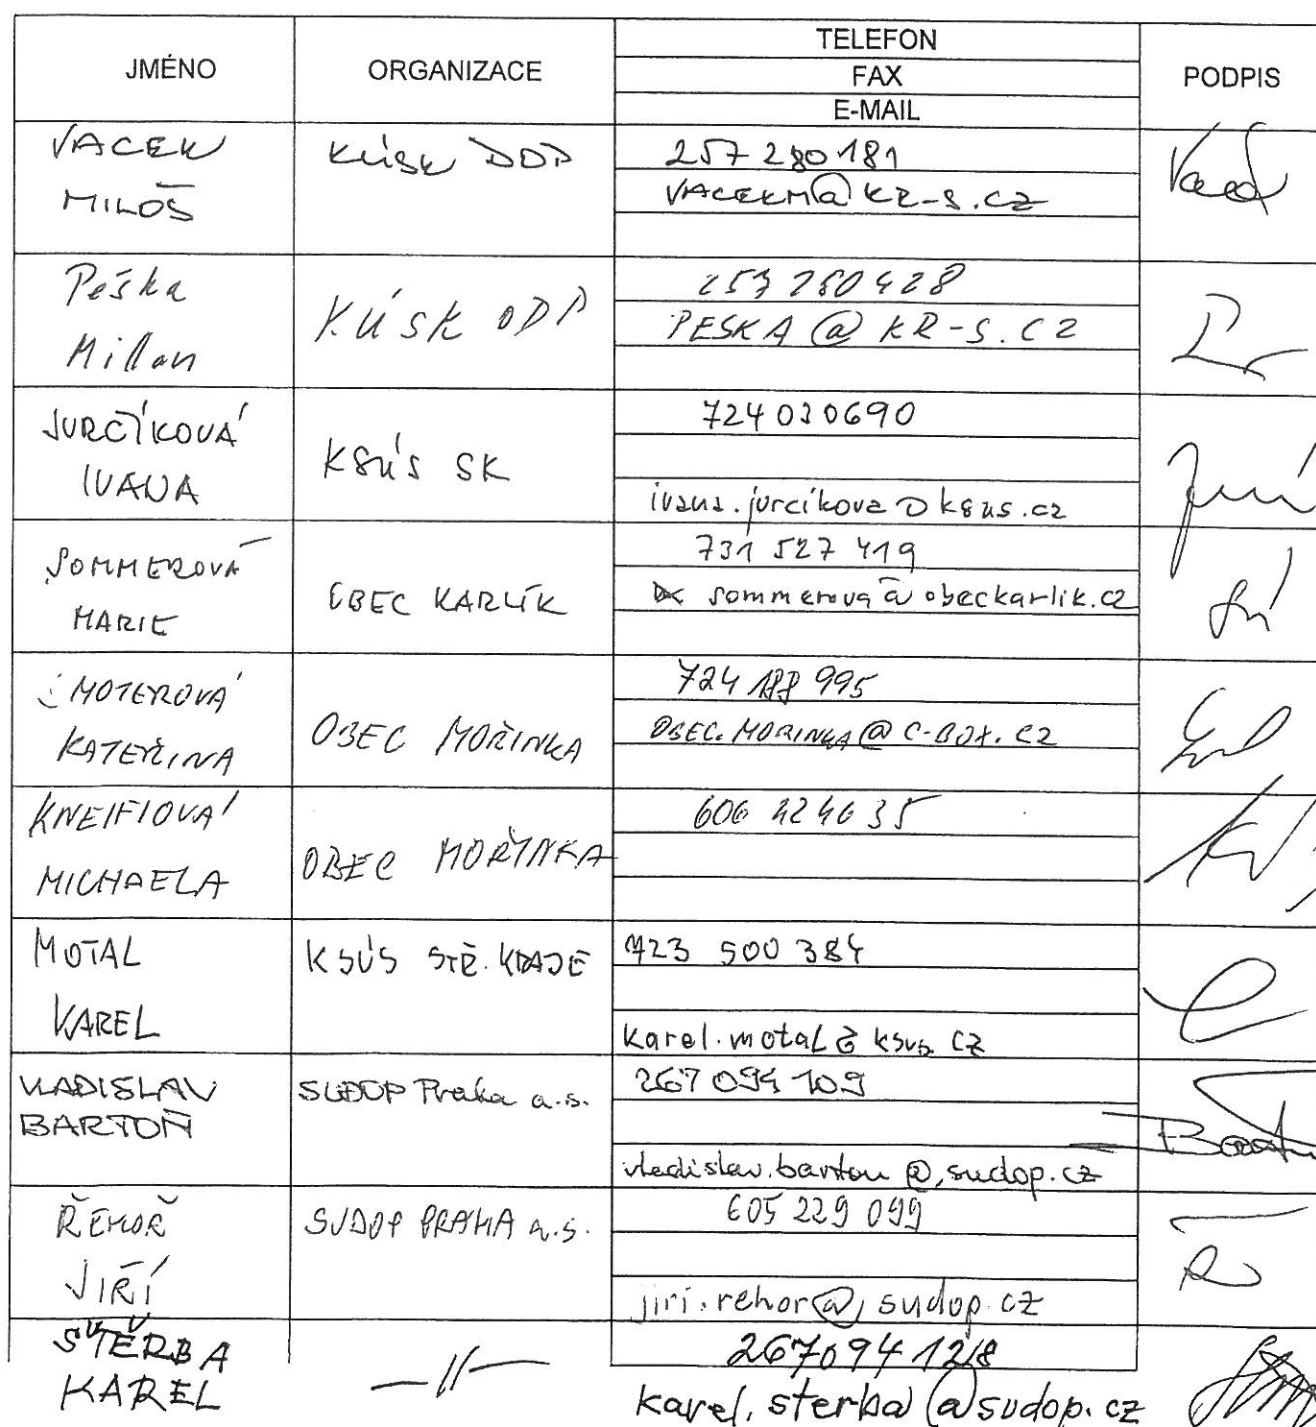 JMÉNO
ORGANIZACE
TELEFON
FAX
E-MAIL
PODPIS
VACEK
MILOŠ
KÚSK DOP
257 280 181
VACEKM@KR-S.CZ
Peška
Millan
KÚSK ODP
257 280 428
PESKA@KR-S.CZ
JURČÍKOVÁ
IVANA
KSÚS SK
724 030690
ivana.jurcikova@ksus.cz
SOMMEROVÁ
MARIE
OBEC KARLÍK
731 527 419
sommerova@obeckarlik.cz
KATEŘINA
OBEC MOŘINKA
724 188 995
OBEC.MORINKA@C-BOX.CZ
KNEIFLOVÁ
MICHAELA
OBEC MOŘINKA
606 424635
MOTAL
KAREL
KSÚS STŘ. KRAJE
723 500 384
karel.motal@ksus.cz
VLADISLAV
BARTOŇ
SUDOP Praha a.s.
267 094 109
vladislav.barton@sudop.cz
ŘEHOŘ
JIŘÍ
SUDOP PRAHA a.s.
605 229 099
jiri.rehor@sudop.cz
ŠTĚRBA
KAREL
—//—
267094 128
karel.sterba@sudop.cz